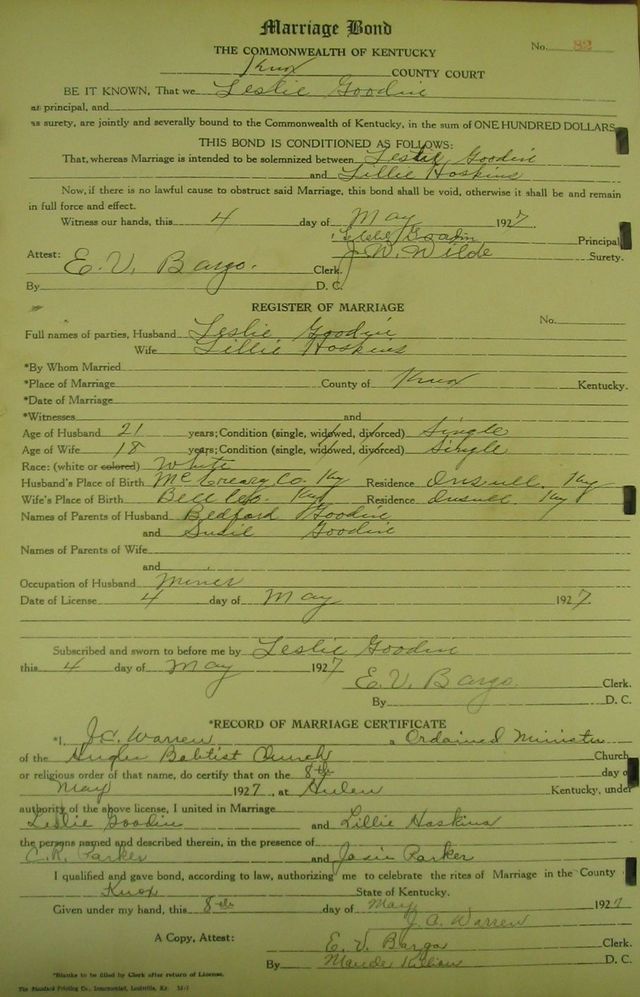 Marriage Bond
No. 82
THE COMMONWEALTH OF KENTUCKY
Knox COUNTY COURT
BE IT KNOWN, That we Leslie Goodin
as principal, and
as surety, are jointly and severally bound to the Commonwealth of Kentucky, in the sum of ONE HUNDRED DOLLARS
THIS BOND IS CONDITIONED AS FOLLOWS:
That, whereas Marriage is intended to be solemnized between Leslie Goodin
and Lillie Hoskins
Now, if there is no lawful cause to obstruct said Marriage, this bond shall be void, otherwise it shall be and remain
in full force and effect.
Witness our hands, this 4 day of May 1927
Leslie Goodin Principal
Attest: J. W. Wilde Surety.
E. V. Bargo. Clerk.
By D. C.
REGISTER OF MARRIAGE
No.
Full names of parties, Husband Leslie Goodin
Wife Lillie Hoskins
*By Whom Married
*Place of Marriage County of Knox Kentucky.
*Date of Marriage
*Witnesses and
Age of Husband 21 years; Condition (single, widowed, divorced) Single
Age of Wife 18 years; Condition (single, widowed, divorced) Single
Race: (white or colored) White
Husband's Place of Birth McCreary Co. Ky Residence Insull, Ky
Wife's Place of Birth Bell Co. Ky Residence Insull, Ky
Names of Parents of Husband Bedford Goodin
and Susie Goodin
Names of Parents of Wife
and
Occupation of Husband Miner
Date of License 4 day of May 1927.
Subscribed and sworn to before me by Leslie Goodin
this 4 day of May 1927
E. V. Bargo Clerk.
By D. C.
*RECORD OF MARRIAGE CERTIFICATE
*I, J. C. Warren a Ordained Minister
of the Babtist Church Church
or religious order of that name, do certify that on the 8th day of
May 1927, at Hulen Kentucky, under
authority of the above license, I united in Marriage
Leslie Goodin and Lillie Hoskins
the persons named and described therein, in the presence of
C. R. Parker and Josie Parker
I qualified and gave bond, according to law, authorizing me to celebrate the rites of Marriage in the County
Knox State of Kentucky.
Given under my hand, this 8th day of May 1927
J. C. Warren
A Copy, Attest: E. V. Bargo Clerk.
By Maude Killian D. C.
*Blanks to be filled by Clerk after return of License.
The Standard Printing Co., Incorporated, Louisville, Ky.